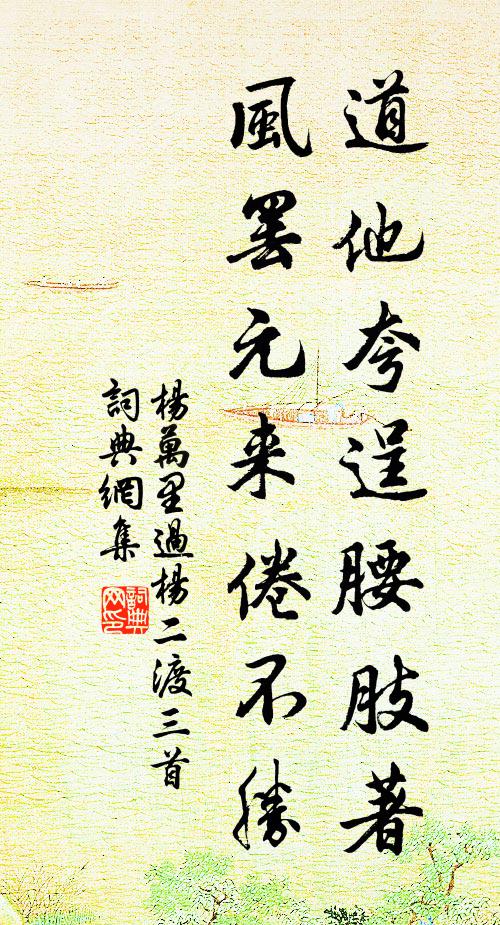 道他夸逞腰肢著
風罢元来倦不勝
楊萬里過楊二渡三首
詞典網集
詞典网印